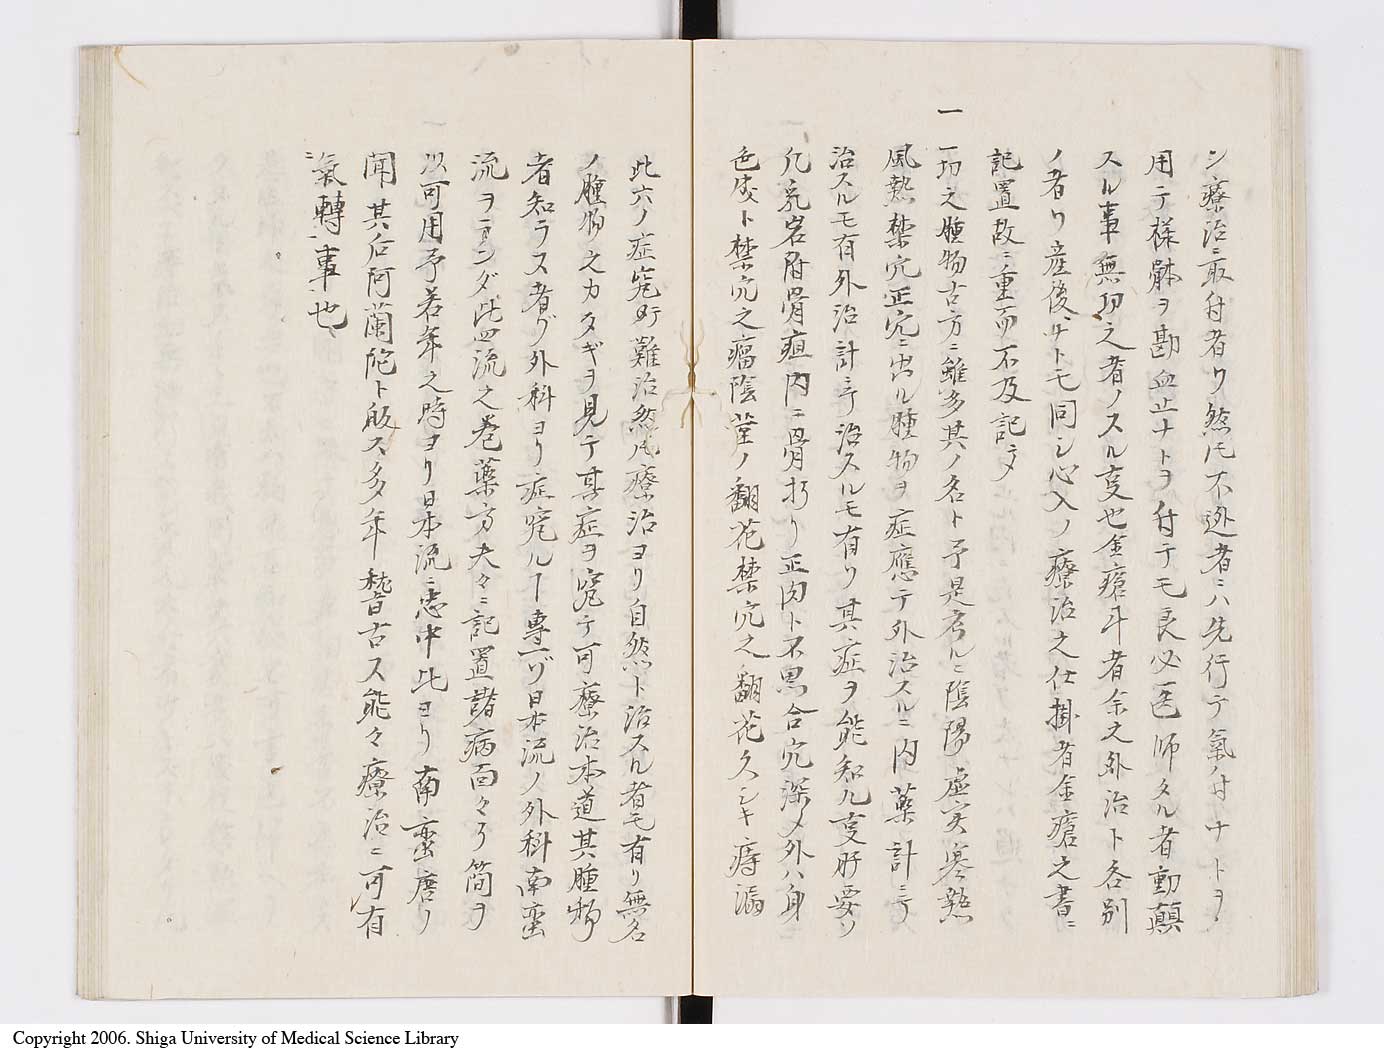 シ療治ニ取付者ワ然𪜈不逊者ニハ先行テ氣付ナトヲ
用テ様躰ヲ勘血止ナトヲ付テモ良必医師タル者動顛
スル事無功之者ノスル叓也金瘡斗者余之外治ト各別
ノ者ワ産後ナトモ同シ心入ノ療治之仕掛者金瘡之書ニ
記置故ニ重而不及記シテ
一 一切之腫物古方ニ雖多其ノ名ト予是名ルニ陰陽虚实寒熱
風熱禁穴正穴ニ出ル腫物ヲ症應テ外治スルニ内薬計ニテ
治スルモ有外治計ニテ治スルモ有リ其症ヲ能知ル叓肝要ソ
凡乳岩附骨疽内ニ骨朽リ正肉ト不思合穴深メ外ハ身ニ
色皮ト禁穴之瘤陰茎ノ翻花禁穴之翻花久シキ痔漏
此六ノ症究テ難治然𪜈療治ヨリ自然ト治スル者モ有リ無名
ノ腫物之カタギヲ見テ其症ヲ究テ可療治本道其腫物
者知ラス者ゾ外科ヨリ症究ルヿ専一ゾ日本流ノ外科南蛮
流ヲランダ此四流之巻薬方夫々ニ記置諸病面々ノ簡ヲ
以可用予若年之時ヨリ日本流ニ志中此ヨリ南蛮唐リ
聞其后阿蘭陀ト皈ス多年稽古ス能々療治ニ可有
氣轉事也
Copyright 2006. Shiga University of Medical Science Library